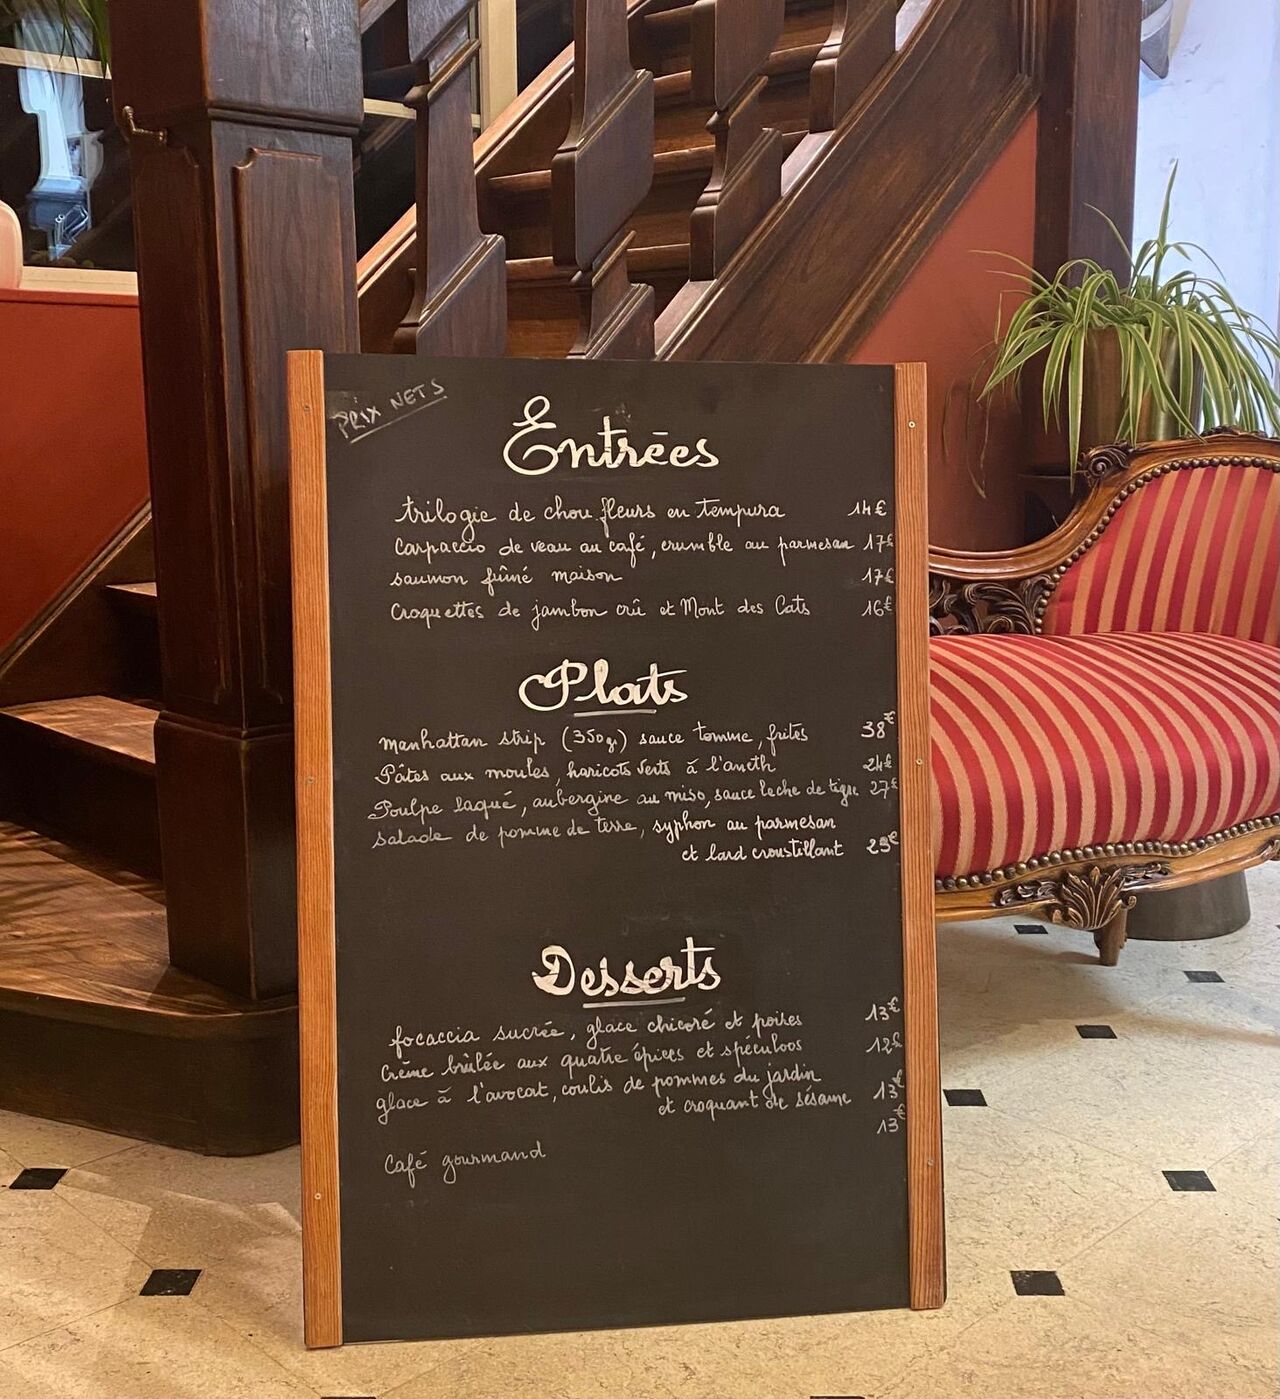 PRIX NETS
Entrées
trilogie de chou fleurs en tempura 14€
Carpaccio de veau au café, crumble au parmesan 17€
saumon fûmé maison 17€
Croquettes de jambon crû et Mont des Cats 16€
Plats
manhattan strip (350g) sauce tomme, frites 38€
Pâtes aux moules, haricots verts à l'aneth 24€
Poulpe laqué, aubergine au miso, sauce leche de tigre 27€
salade de pomme de terre, syphon au parmesan
et lard croustillant 23€
Desserts
focaccia sucrée, glace chicoré et poires 13€
Crème brûlée aux quatre épices et spéculoos 12€
glace à l'avocat, coulis de pommes du jardin
et croquant de sésame 13€
13€
Café gourmand